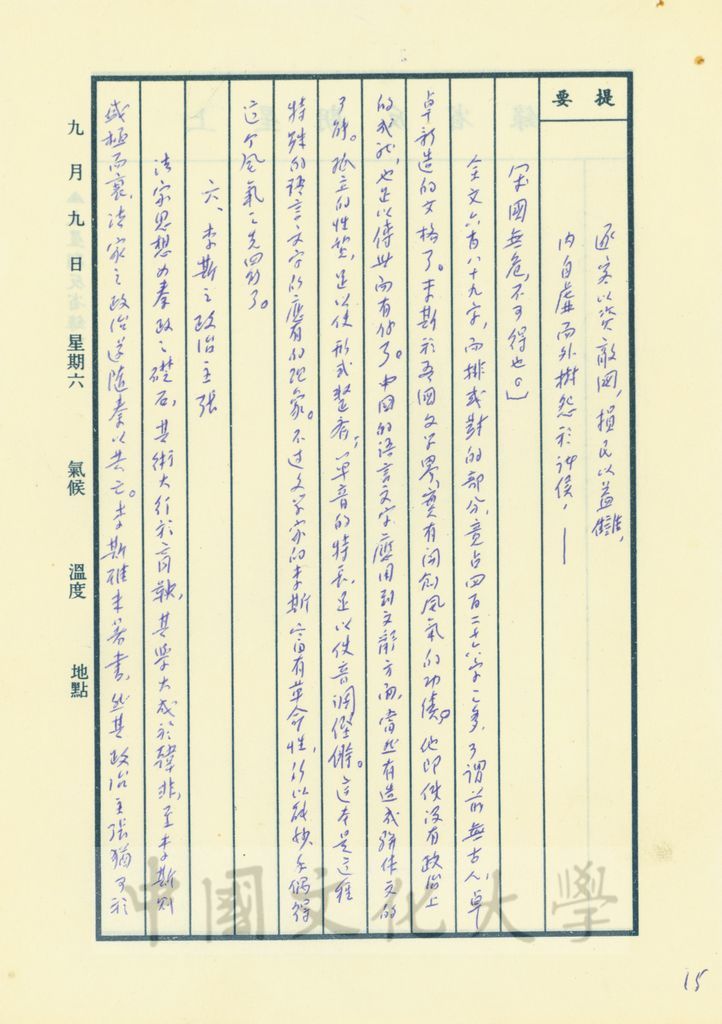 提要
逐客以資敵國，損民以益讎，
內自虛而外樹怨於諸侯，——
求國無危，不可得也。」
全文六百八十九字，而排或對的部分，竟占四百二十六字之多，可謂前無古人，卓
卓新造的文格了。李斯於吾國文學界，實有開創風氣的功績。他即使沒有政治上
的成就，也足以恃此而有住了。中國的語言文字，應用到文辭方面，當然有造成駢体文的
可能。孤立的性質，足以使形式整齊；單音的特長，足以使音調鏗鏘。這本是這種
特殊的語言文字所應有的現象。不過文學家的李斯，富有革命性，所以能妙手偶得
這个風氣之先罷了。
六、李斯之政治主張
法家思想力秦政之礎石，其術大行於商鞅，其學大成於韓非，至李斯則
盛極而衰，法家之政治遂隨秦以共亡。李斯雖未著書，然其政治主張猶可於
九月九日 星期六 氣候 溫度 地點
中國文化大學
15